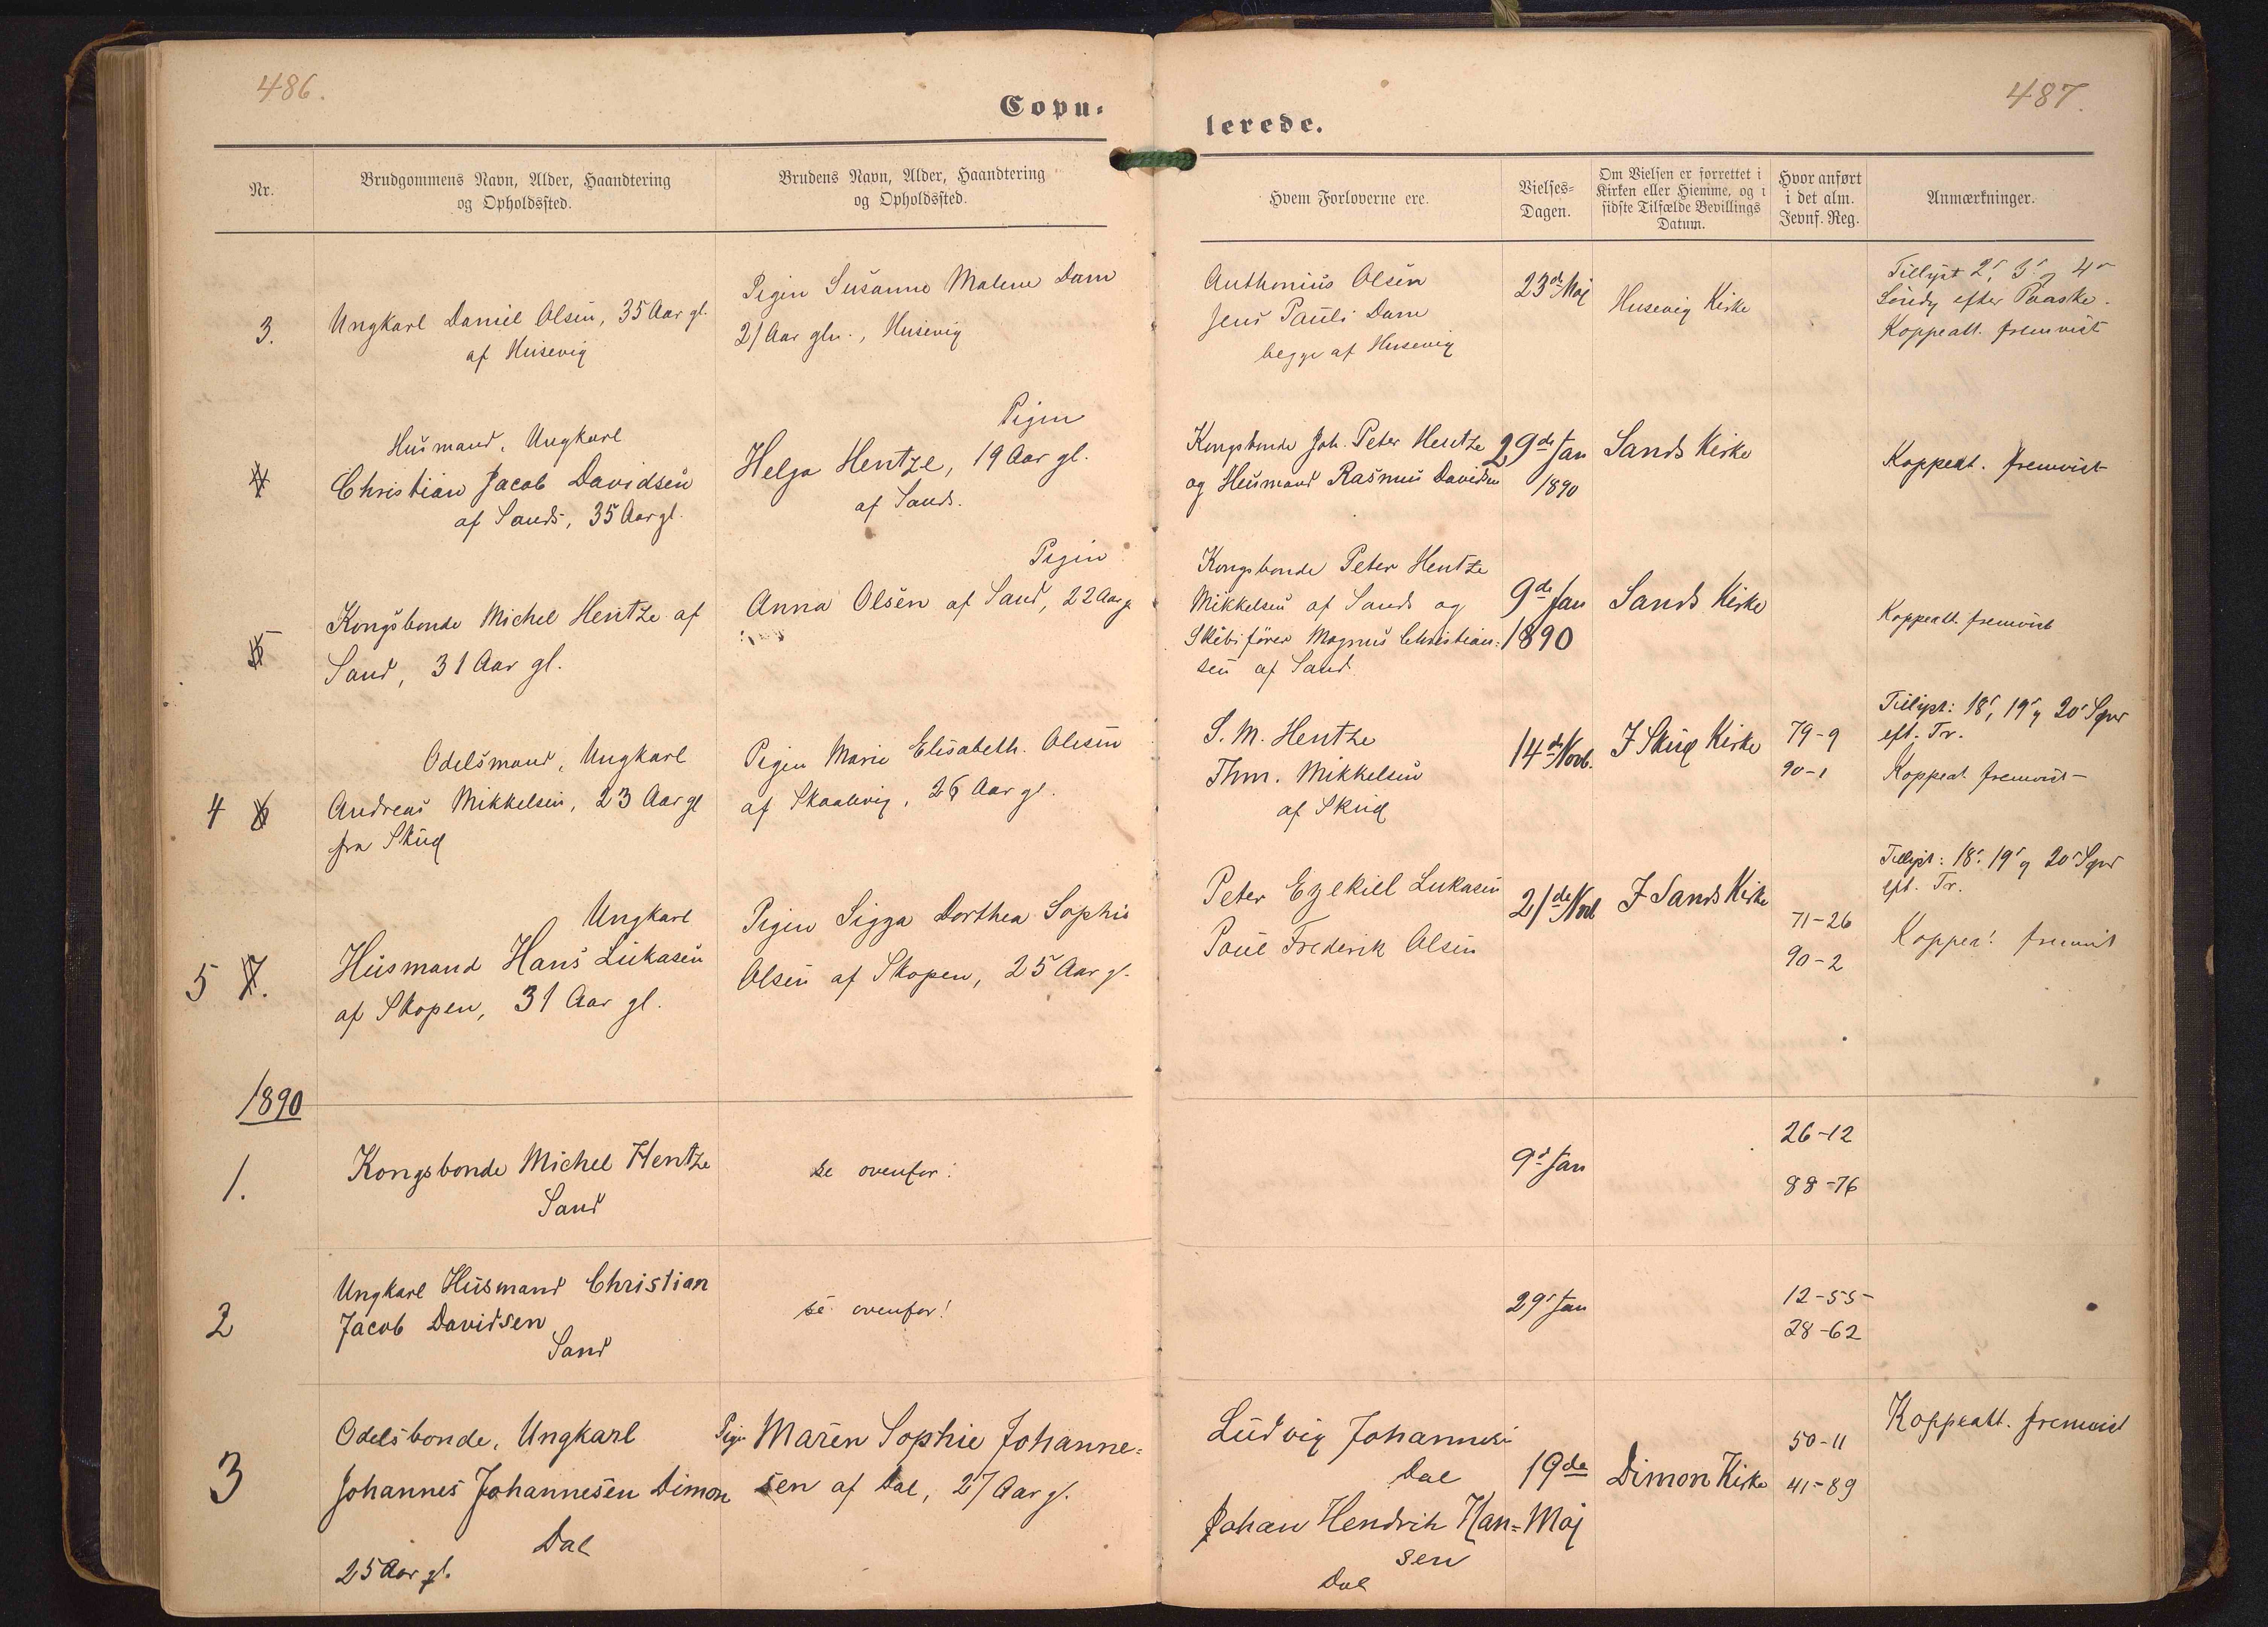 486.
487.
Copu-
lerede.
Nr.
Brudgommens Navn, Alder, Haandtering
og Opholdssted.
Brudens Navn, Alder, Haandtering
og Opholdssted.
Hvem Forloverne ere.
Vielses-
Dagen.
Om Vielsen er forrettet i
Kirken eller Hiemme, og i
sidste Tilfælde Bevillings
Datum.
Hvor anført
i det alm.
Jevnf. Reg.
Anmærkninger.
3.
Ungkarl Daniel Olsen, 35 Aar gl.
af Husevig
Pigen Susanne Malene Dam
21 Aar gln., Husevig
Anthonius Olsen
Jens Pauli Dam
begge af Husevig
23de Maj
Husevig Kirke
Tillyst 2', 3' og 4'
Söndg efter Paaske.
Koppeatt. fremvist
4
Husmand, Ungkarl
Christian Jacob Davidsen
af Sands, 35 Aar gl.
Pigen
Helga Hentze, 19 Aar gl.
af Sands.
Kongsbonde Joh. Peter Hentze
og Husmand Rasmus Davidsen
29de Jan
1890
Sands Kirke
Koppeat. fremvist
5
Kongsbonde Michel Hentze af
Sand, 31 Aar gl.
Pigen
Anna Olsen af Sand, 22 Aar g.
Kongsbonde Peter Hentze
Mikkelsen af Sands og
Skibsfører Magnus Christian-
sen af Sand
9de Jan
1890
Sands Kirke
Koppeatt fremvist
4 6
Odelsmand, Ungkarl
Andreas Mikkelsen, 23 Aar gl
fra Skuø
Pigen Marie Elisabeth Olesen
af Skaalevig, 26 Aar gl.
S. M. Hentze
Thm. Mikkelsen
af Skuø
14de Novb.
I Skuø Kirke
79-9
90-1
Tillyst: 18', 19' og 20'
eft. Tr.
Koppeat. fremvist
5 7.
Ungkarl
Husmand Hans Lukasen
af Skopen, 31 Aar gl.
Pigen Sigga Dorthea Sophie
Olsen af Skopen, 25 Aar g.
Peter Ezekiel Lukasen
Poul Frederik Olsen
21de Novb
I Sands Kirke
71-26
90-2
Tillyst: 18' 19' og 20'
eft. Tr.
Koppea! fremvist
1890
1.
Kongsbonde Michel Hentze
Sand
se ovenfor!
9' Jan
26-12
88-76
2
Ungkarl Husmand Christian
Jacob Davidsen
Sand
se ovenfor!
29' Jan
12-55
28-62
3
Odelsbonde, Ungkarl
Johannes Johannesen Dimon
Dal
25 Aar gl.
Pigen Maren Sophie Johanne-
sen af Dal, 27 Aar g.
Ludvig Johannesen
Dal
Johan Hendrik Han-
sen
Dal
19de
Maj
Dimon Kirke
50-11
41-89
Koppeatt. fremvist